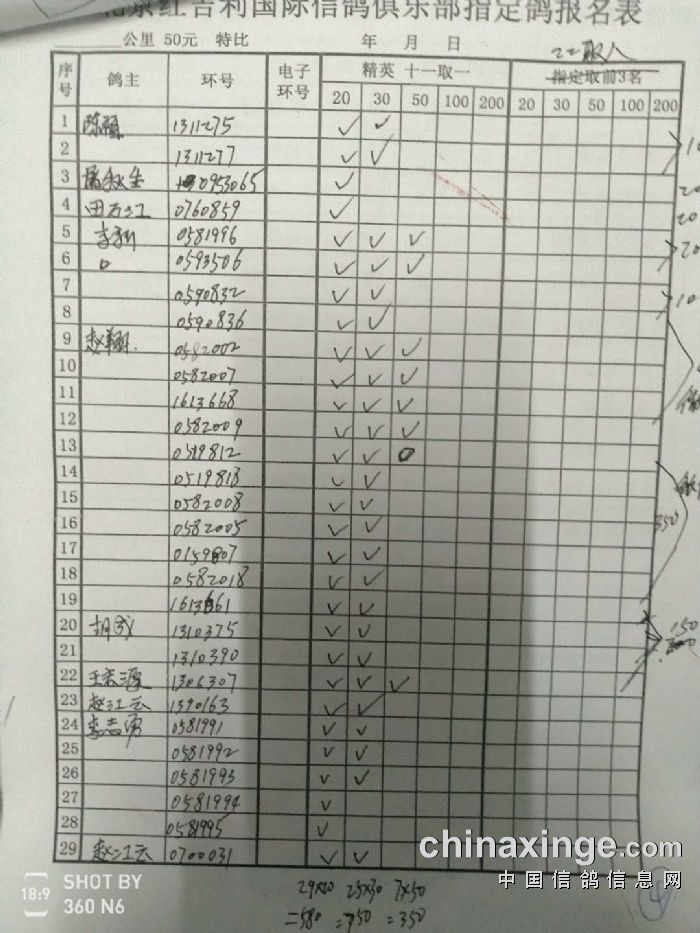 北京红吉利国际信鸽俱乐部指定鸽报名表
公里 50元 特比 年 月 日
二二取人
序号 鸽主 环号 电子环号 精英 十一取一 指定取前3名
20 30 50 100 200 20 30 50 100 200
1 陈颐 1311275 ✓ ✓
2 1311277 ✓ ✓ 10
3 0953065 ✓ 20
4 田万江 0760859 ✓ 20
5 李新 0581996 ✓ ✓ ✓
6 0593506 ✓ ✓ ✓ 20
7 0590832 ✓ ✓
8 0590836 ✓ ✓ 10
9 赵翔 0582002 ✓ ✓ ✓
10 0582007 ✓ ✓ ✓
11 1613668 ✓ ✓ ✓
12 0582009 ✓ ✓ ✓
13 0519812 ✓ ✓
14 0519813 ✓ ✓
15 0582008 ✓ ✓
16 0582005 ✓ ✓ 350
17 0159807 ✓ ✓
18 0582018 ✓ ✓
19 1613661 ✓ ✓
20 胡成 1310375 ✓ ✓ 150
21 1310390 ✓ ✓
22 王志源 1306307 ✓ ✓ ✓
23 赵江云 1390163 ✓ ✓
24 李志勇 0581991 ✓ ✓
25 0581992 ✓ ✓
26 0581993 ✓ ✓
27 0581994 ✓
28 0581995 ✓
29 赵江云 0700031 ✓ ✓
29×20 25×30 7×50
=580 =750 =350
4
SHOT BY
360 N6
18:9
chinaxinge.com
中国信鸽信息网